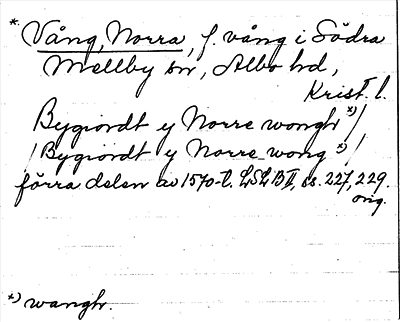 * Vång, Norra, f. vång i Södra
Mellby sn, Albo hd,
Krist. l.
Bygiordt y Norre wongh *)/
/Bygiordt y Norre wong *)/
förra delen av 1570-t. LSLB II, ss. 227, 229.
orig.
*) wangh.